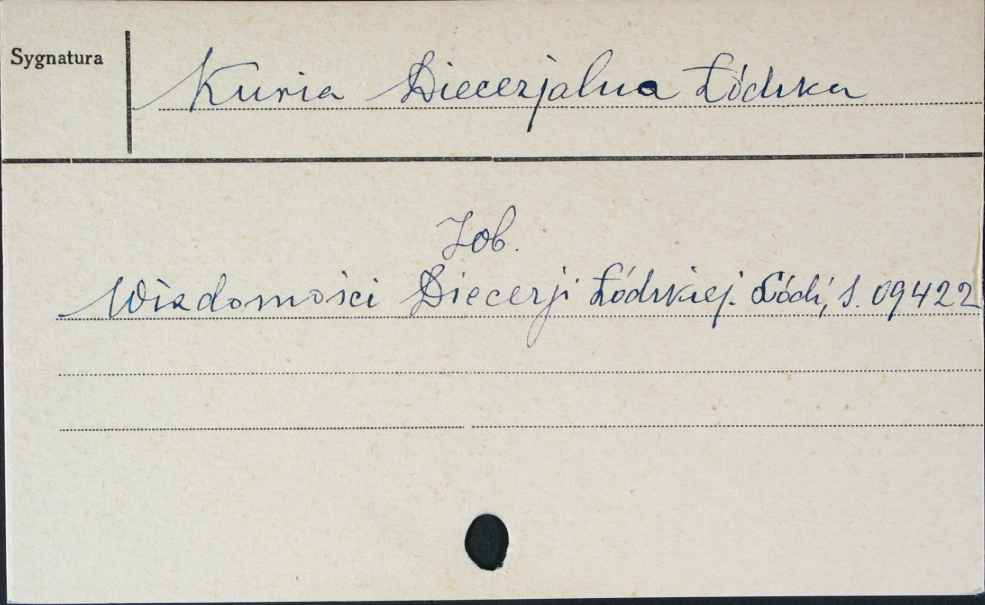 Sygnatura
Kuria Diecezjalna Łódzka
Zob.
Wiadomości Diecezji Łódzkiej. Łódź, S. 09422